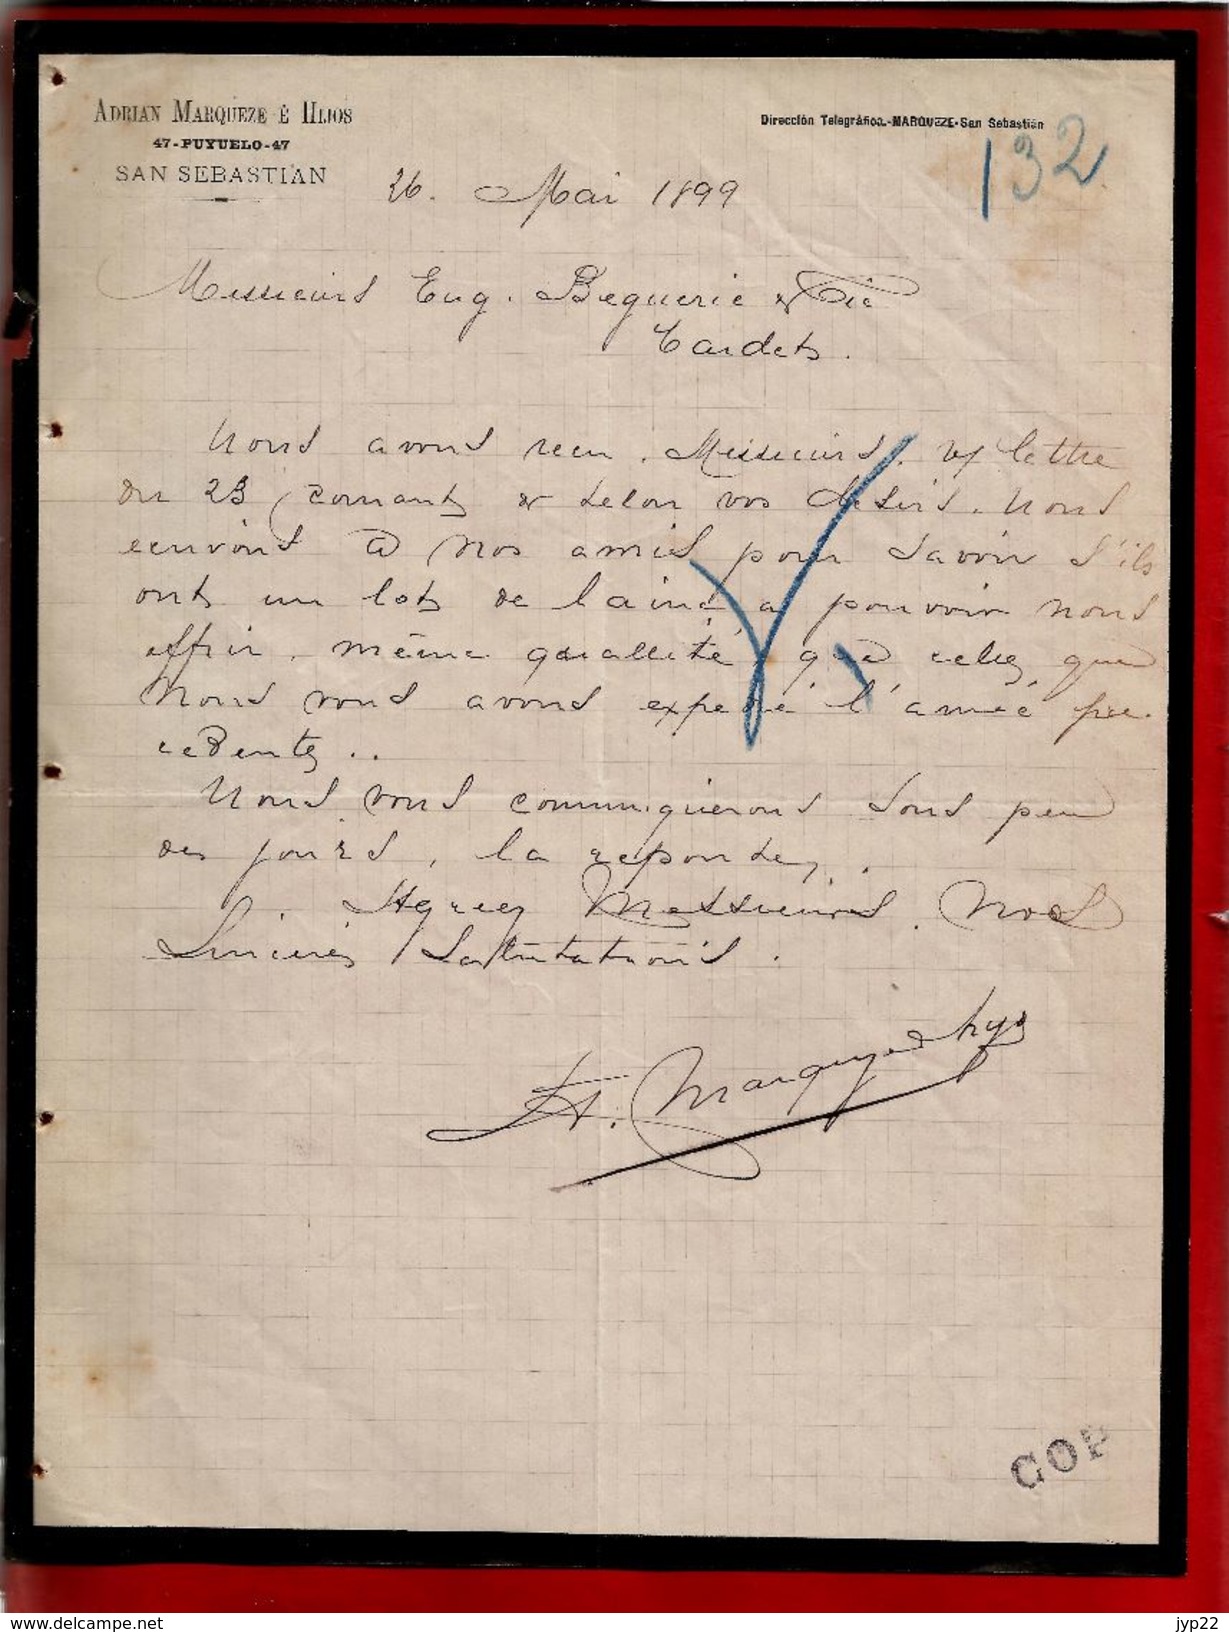 ADRIAN MARQUEZE É HIJOS
47-PUYUELO-47
SAN SEBASTIÁN
Dirección Telegráfica.-MARQUEZE-San Sebastián
132
26. Mai 1899
Messieurs Eug. Beguerie & Cie
Tardets.
Nous avons recu. Messieurs. v/ lettre
du 23 courant & selon vos desirs. Nous
ecrivons a nos amis pour savoir s'ils
onts un lots de laine a pouvoir nous
offrir. même quallité que celles que
Nous vous avons expedié l'année pre-
cedente..
Nous vous communiquerons sous peu
des jours, la reponse,.
Agreez Messieurs. Nos
Sinceres Salutations.
A. Marqueze & hijos
COP
www.delcampe.net
jyp22